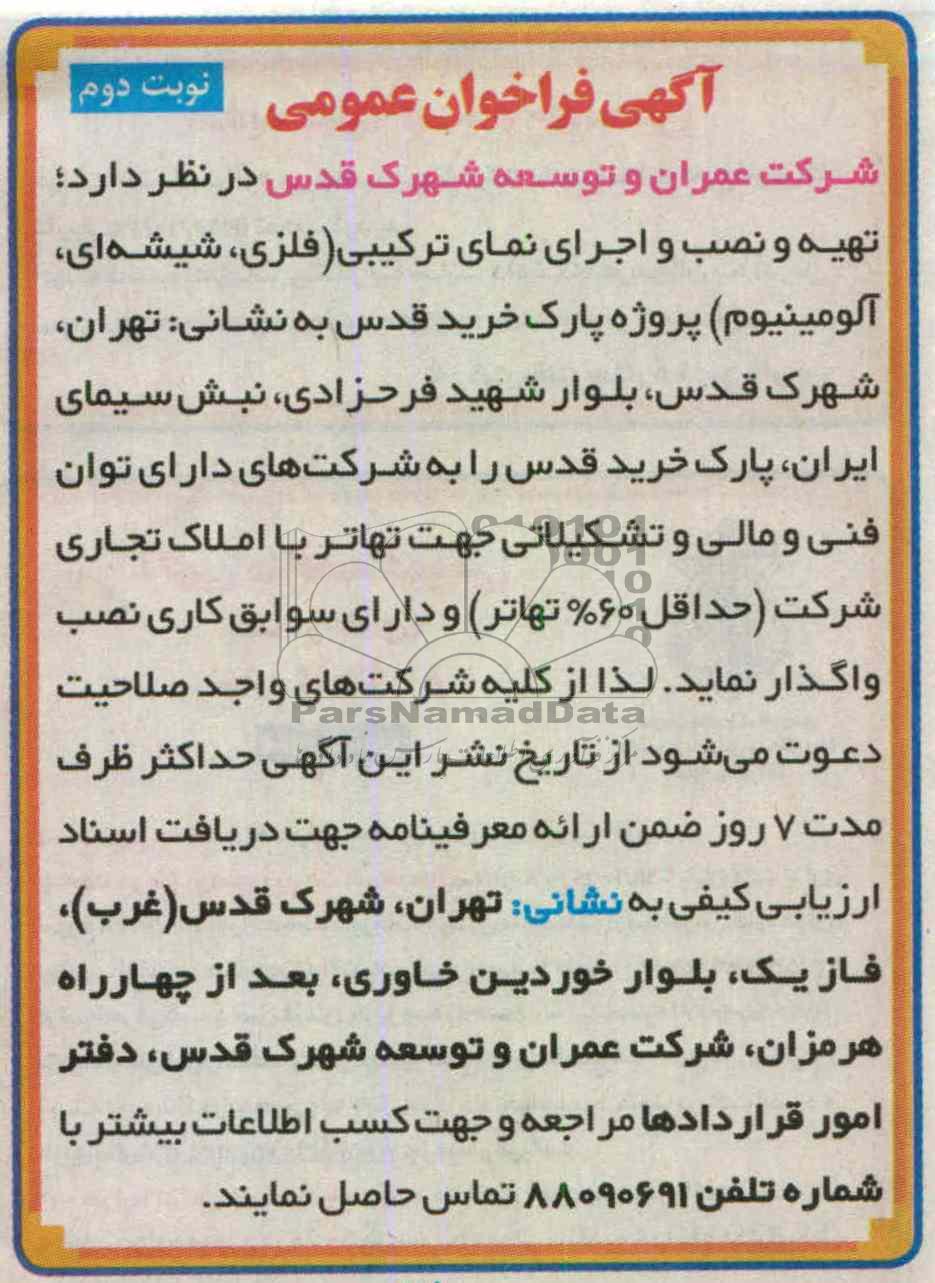 آگهی فراخوان عمومی
نوبت دوم
شرکت عمران و توسعه شهرک قدس در نظر دارد؛
تهیه و نصب و اجرای نمای ترکیبی(فلزی، شیشه‌ای،
آلومینیوم) پروژه پارک خرید قدس به نشانی: تهران،
شهرک قدس، بلوار شهید فرحزادی، نبش سیمای
ایران، پارک خرید قدس را به شرکت‌های دارای توان
فنی و مالی و تشکیلاتی جهت تهاتر با املاک تجاری
شرکت (حداقل ۶۰% تهاتر) و دارای سوابق کاری نصب
واگذار نماید. لذا از کلیه شرکت‌های واجد صلاحیت
ParsNamadData
دعوت می‌شود از تاریخ نشر این آگهی حداکثر ظرف
مدت ۷ روز ضمن ارائه معرفینامه جهت دریافت اسناد
ارزیابی کیفی به نشانی: تهران، شهرک قدس(غرب)،
فاز یک، بلوار خوردین خاوری، بعد از چهارراه
هرمزان، شرکت عمران و توسعه شهرک قدس، دفتر
امور قراردادها مراجعه و جهت کسب اطلاعات بیشتر با
شماره تلفن ۸۸۰۹۰۶۹۱ تماس حاصل نمایند.